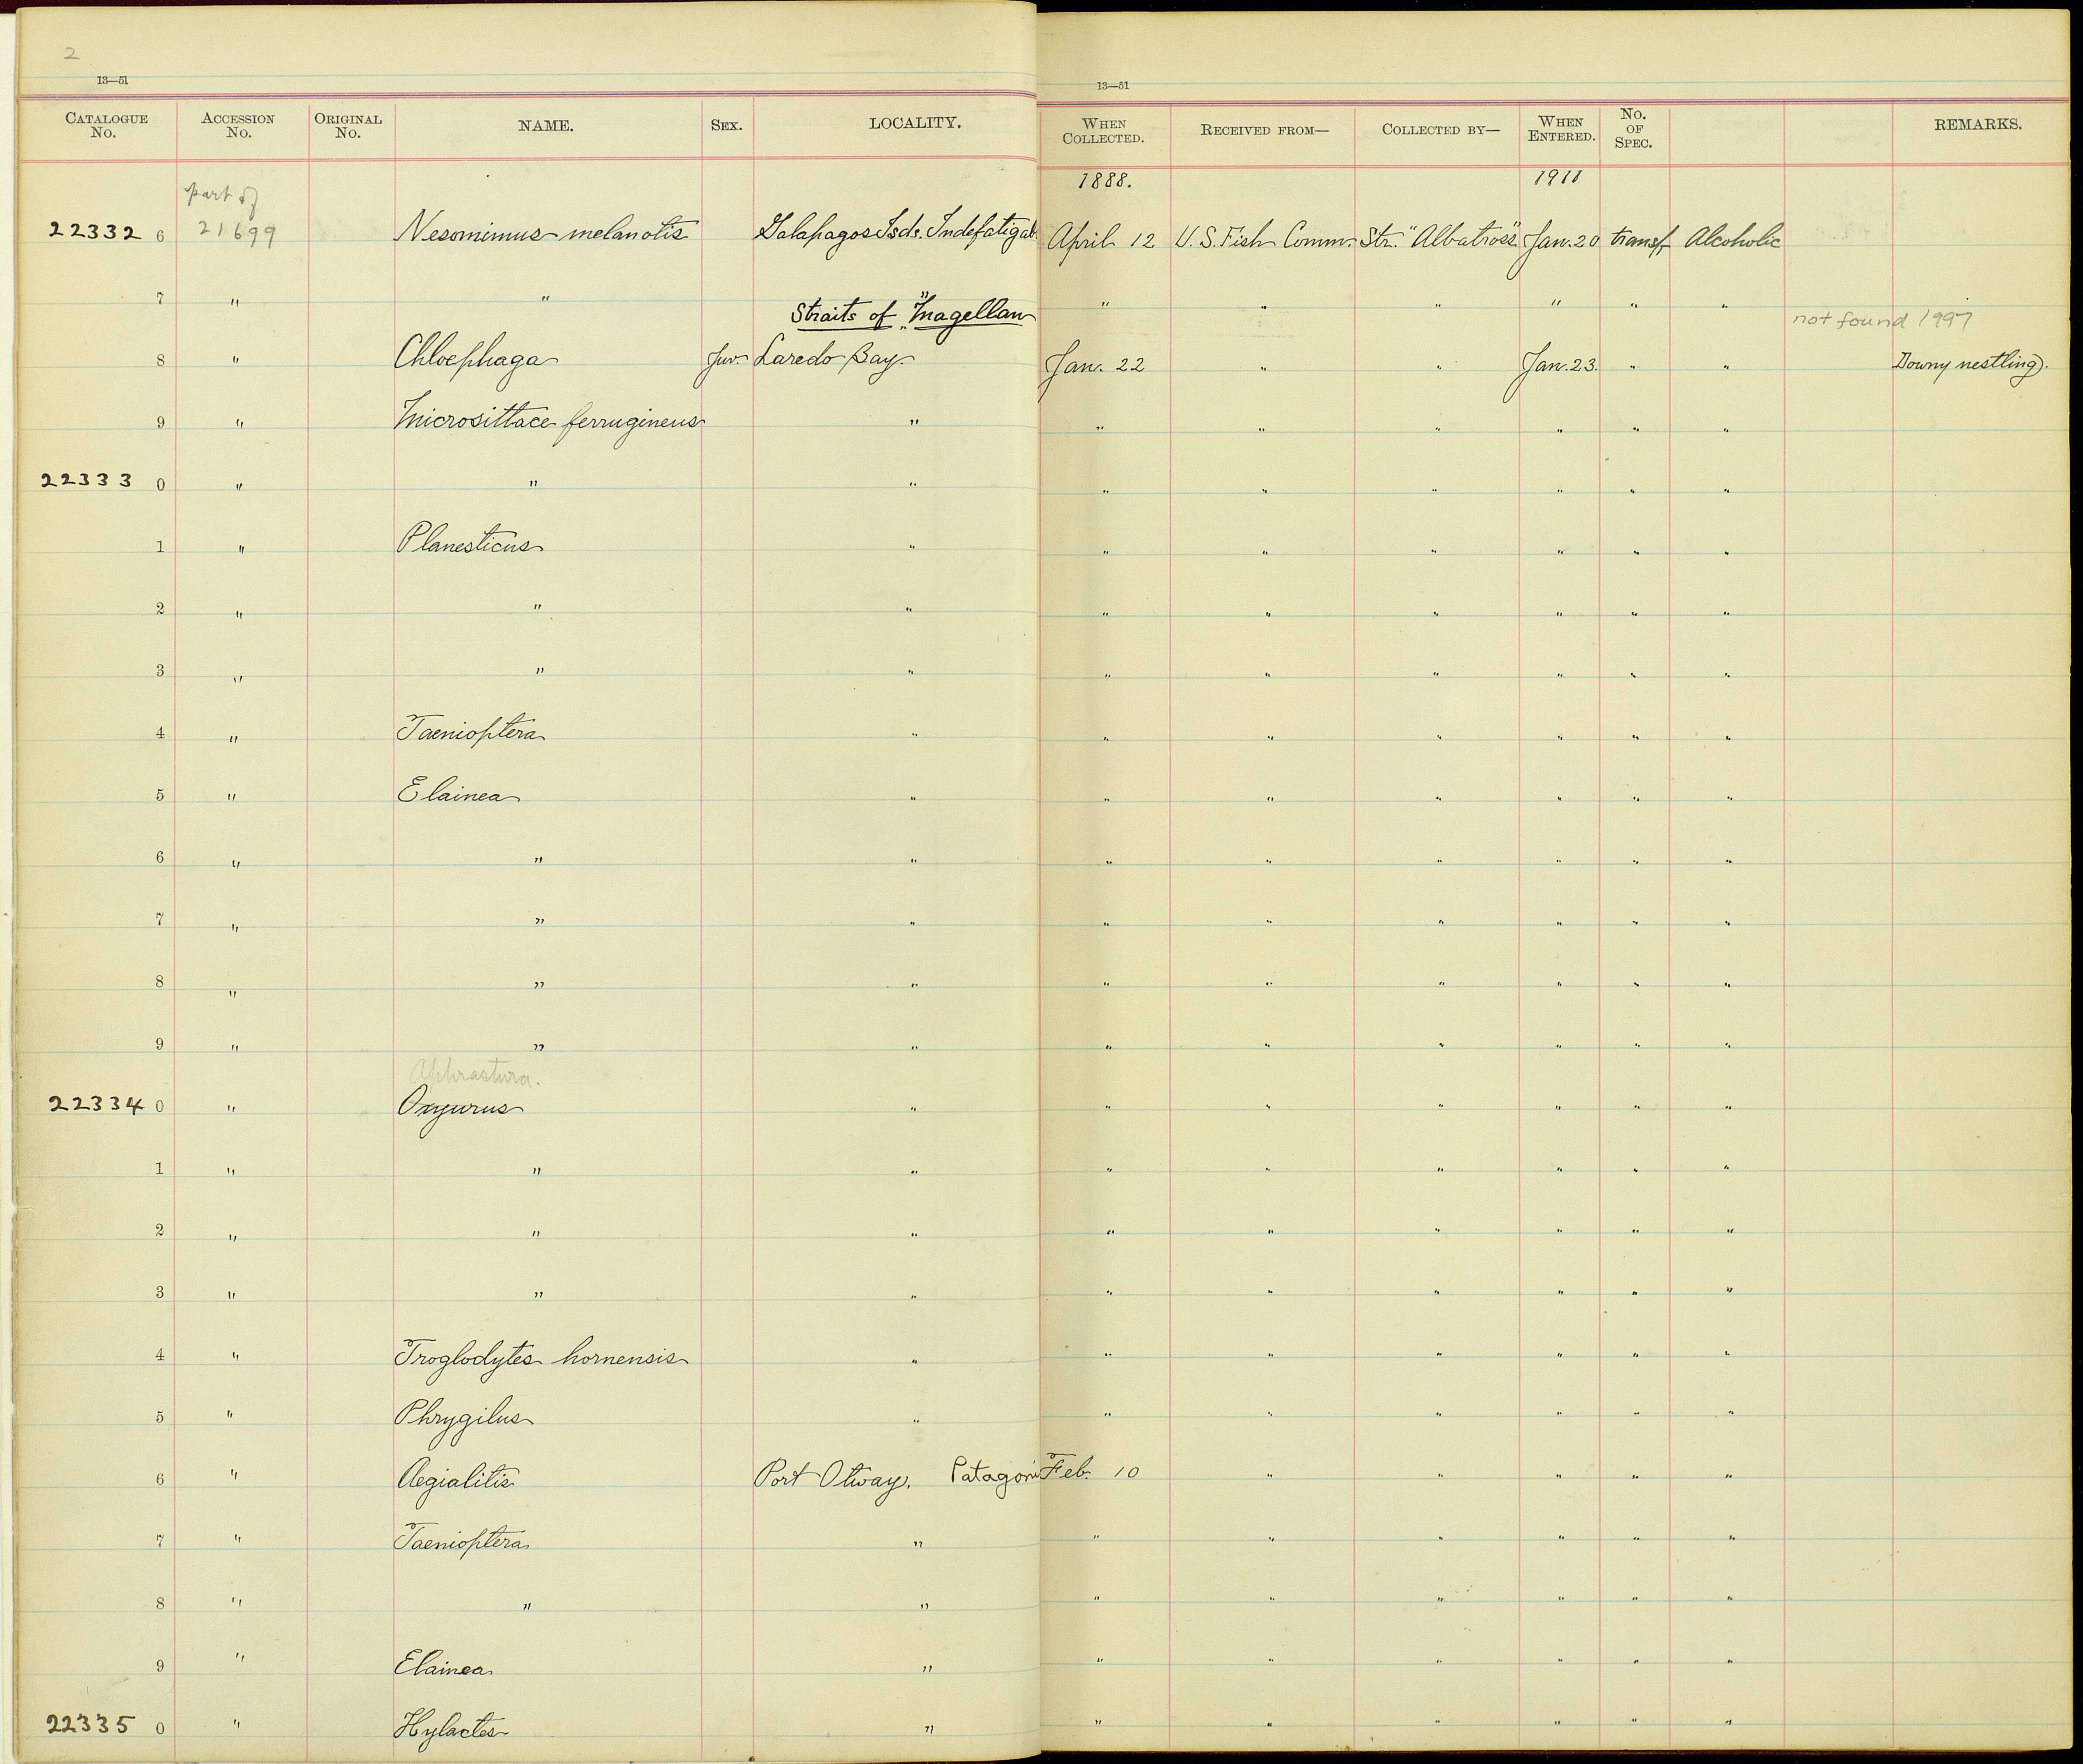 2
13—51
13—51
CATALOGUE No. ACCESSION No. ORIGINAL No. NAME. SEX. LOCALITY. WHEN COLLECTED. RECEIVED FROM— COLLECTED BY— WHEN ENTERED. No. OF SPEC. REMARKS.
1888. 1911
Part of
22332 6 21699 Nesomimus melanotis Galapagos Isds. Indefatigab April 12 U.S. Fish Comm. Str. "Albatross" Jan. 20 transf. Alcoholic
7 " " " " " " " " "
Straits of Magellan
not found 1997
8 " Chloephaga Juv. Laredo Bay. Jan. 22 " " Jan. 23. " " Downy nestling).
9 " Microsittace ferrugineus " " " " " " "
22333 0 " " " " " " " " "
1 " Planesticus " " " " " " "
2 " " " " " " " " "
3 " " " " " " " " "
4 " Taenioptera " " " " " " "
5 " Elainea " " " " " " "
6 " " " " " " " " "
7 " " " " " " " " "
8 " " " " " " " " "
9 " " " " " " " " "
Aphrastura.
22334 0 " Oxyurus " " " " " " "
1 " " " " " " " " "
2 " " " " " " " " "
3 " " " " " " " " "
4 " Troglodytes hornensis " " " " " " "
5 " Phrygilus " " " " " " "
6 " Aegialitis Port Otway. Patagoni Feb. 10 " " " " "
7 " Taenioptera " " " " " " "
8 " " " " " " " " "
9 " Elainea " " " " " " "
22335 0 " Hylactes " " " " " " "